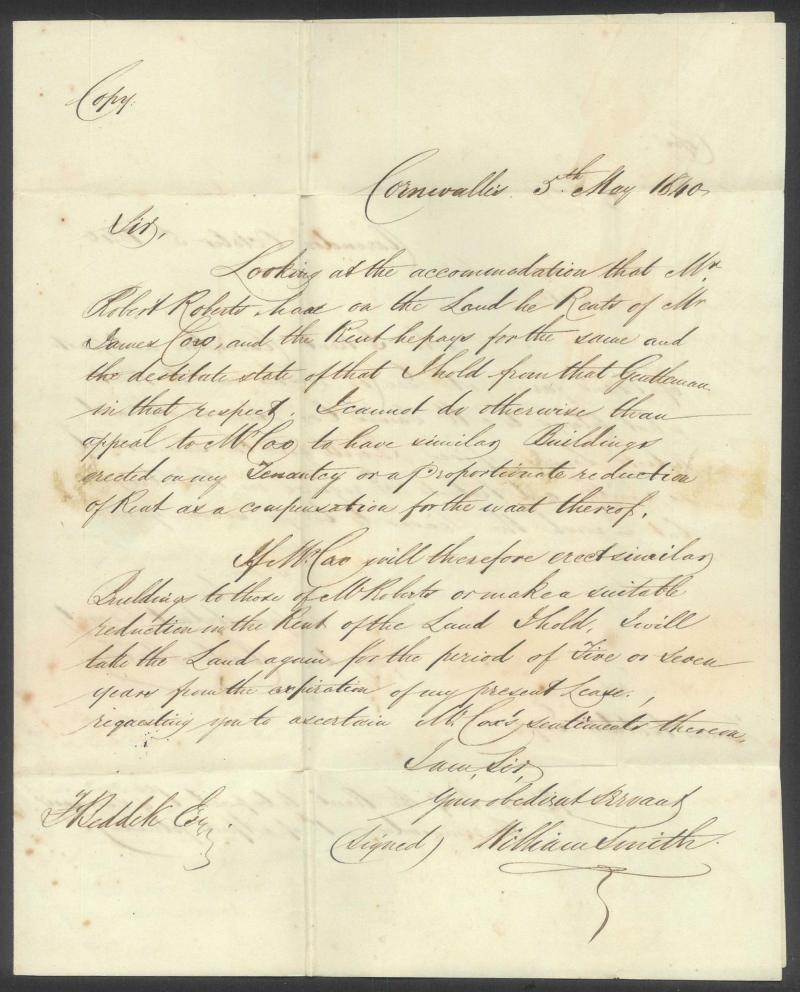 Copy.
Cornwallis 5th May 1840
Sir,
Looking at the accommodation that Mr.
Robert Roberts, has on the Land he Rents of Mr
James Cox, and the Rent he pays for the same and
the destitute state of that I hold from that Gentleman
in that respect. I cannot do otherwise than
appeal to Mr. Cox to have similar Buildings
erected on my Tenantcy or a Proportionate reduction
of Rent as a compensation for the want thereof.
If Mr. Cox will therefore erect similar
Buildings to those of Mr Roberts or make a suitable
reduction in the Rent of the Land I hold, I will
take the Land again for the period of Five or Seven
years from the expiration of my present Lease.,
requesting you to ascertain Mr. Cox's sentiments thereon,
I am, Sir,
Your obedient Servant
(signed) William Smith.
Esq